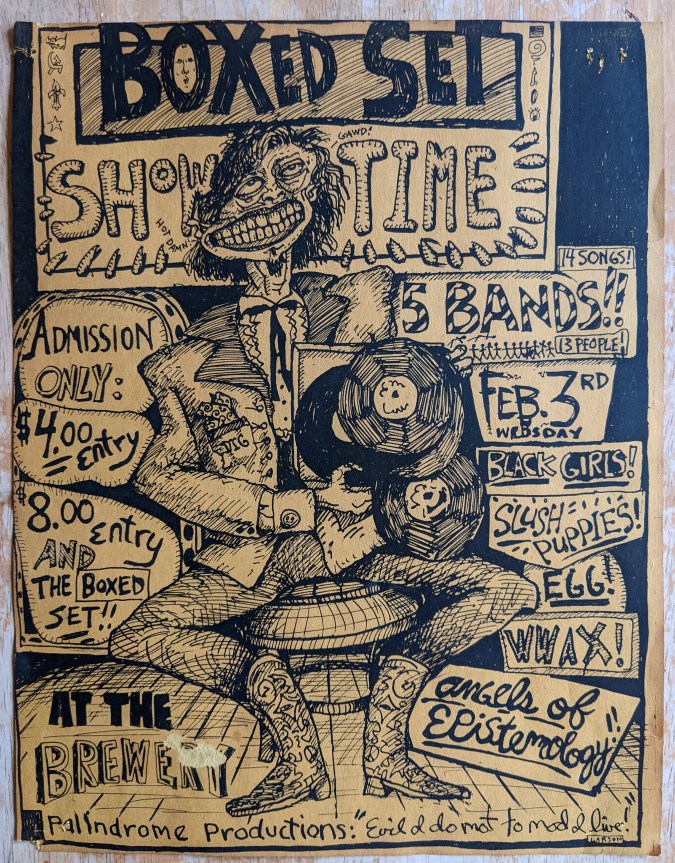 BOXED SET
SHOW TIME
GAWD!
HOT DAMN!
14 SONGS!
5 BANDS!!
13 PEOPLE!
ADMISSION
ONLY:
$4.00
Entry
$8.00
Entry
AND
THE BOXED
SET!!
FEB. 3RD
WEDSDAY
BLACK GIRLS!
SLUSH
PUPPIES!
EGG!
WWAX!
angels of
EPistemology!!
AT THE
BREWERY
Palindrome Productions: "Evil I do not to nod I live!"
LARSON